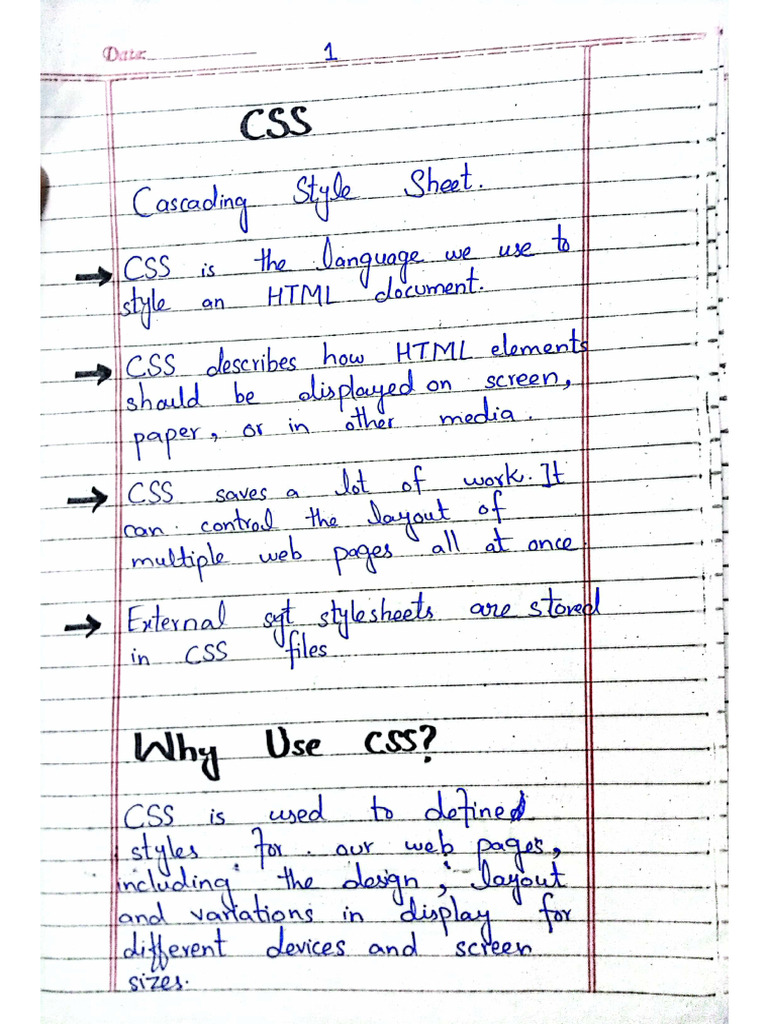 Date: 1
CSS
Cascading Style Sheet.
→ CSS is the language we use to
style an HTML document.
→ CSS describes how HTML elements
should be displayed on screen,
paper, or in other media.
→ CSS saves a lot of work. It
can control the layout of
multiple web pages all at once.
→ External syt stylesheets are stored
in CSS files
Why Use CSS?
CSS is used to define
styles for our web pages,
including the design, layout
and variations in display for
different devices and screen
sizes.